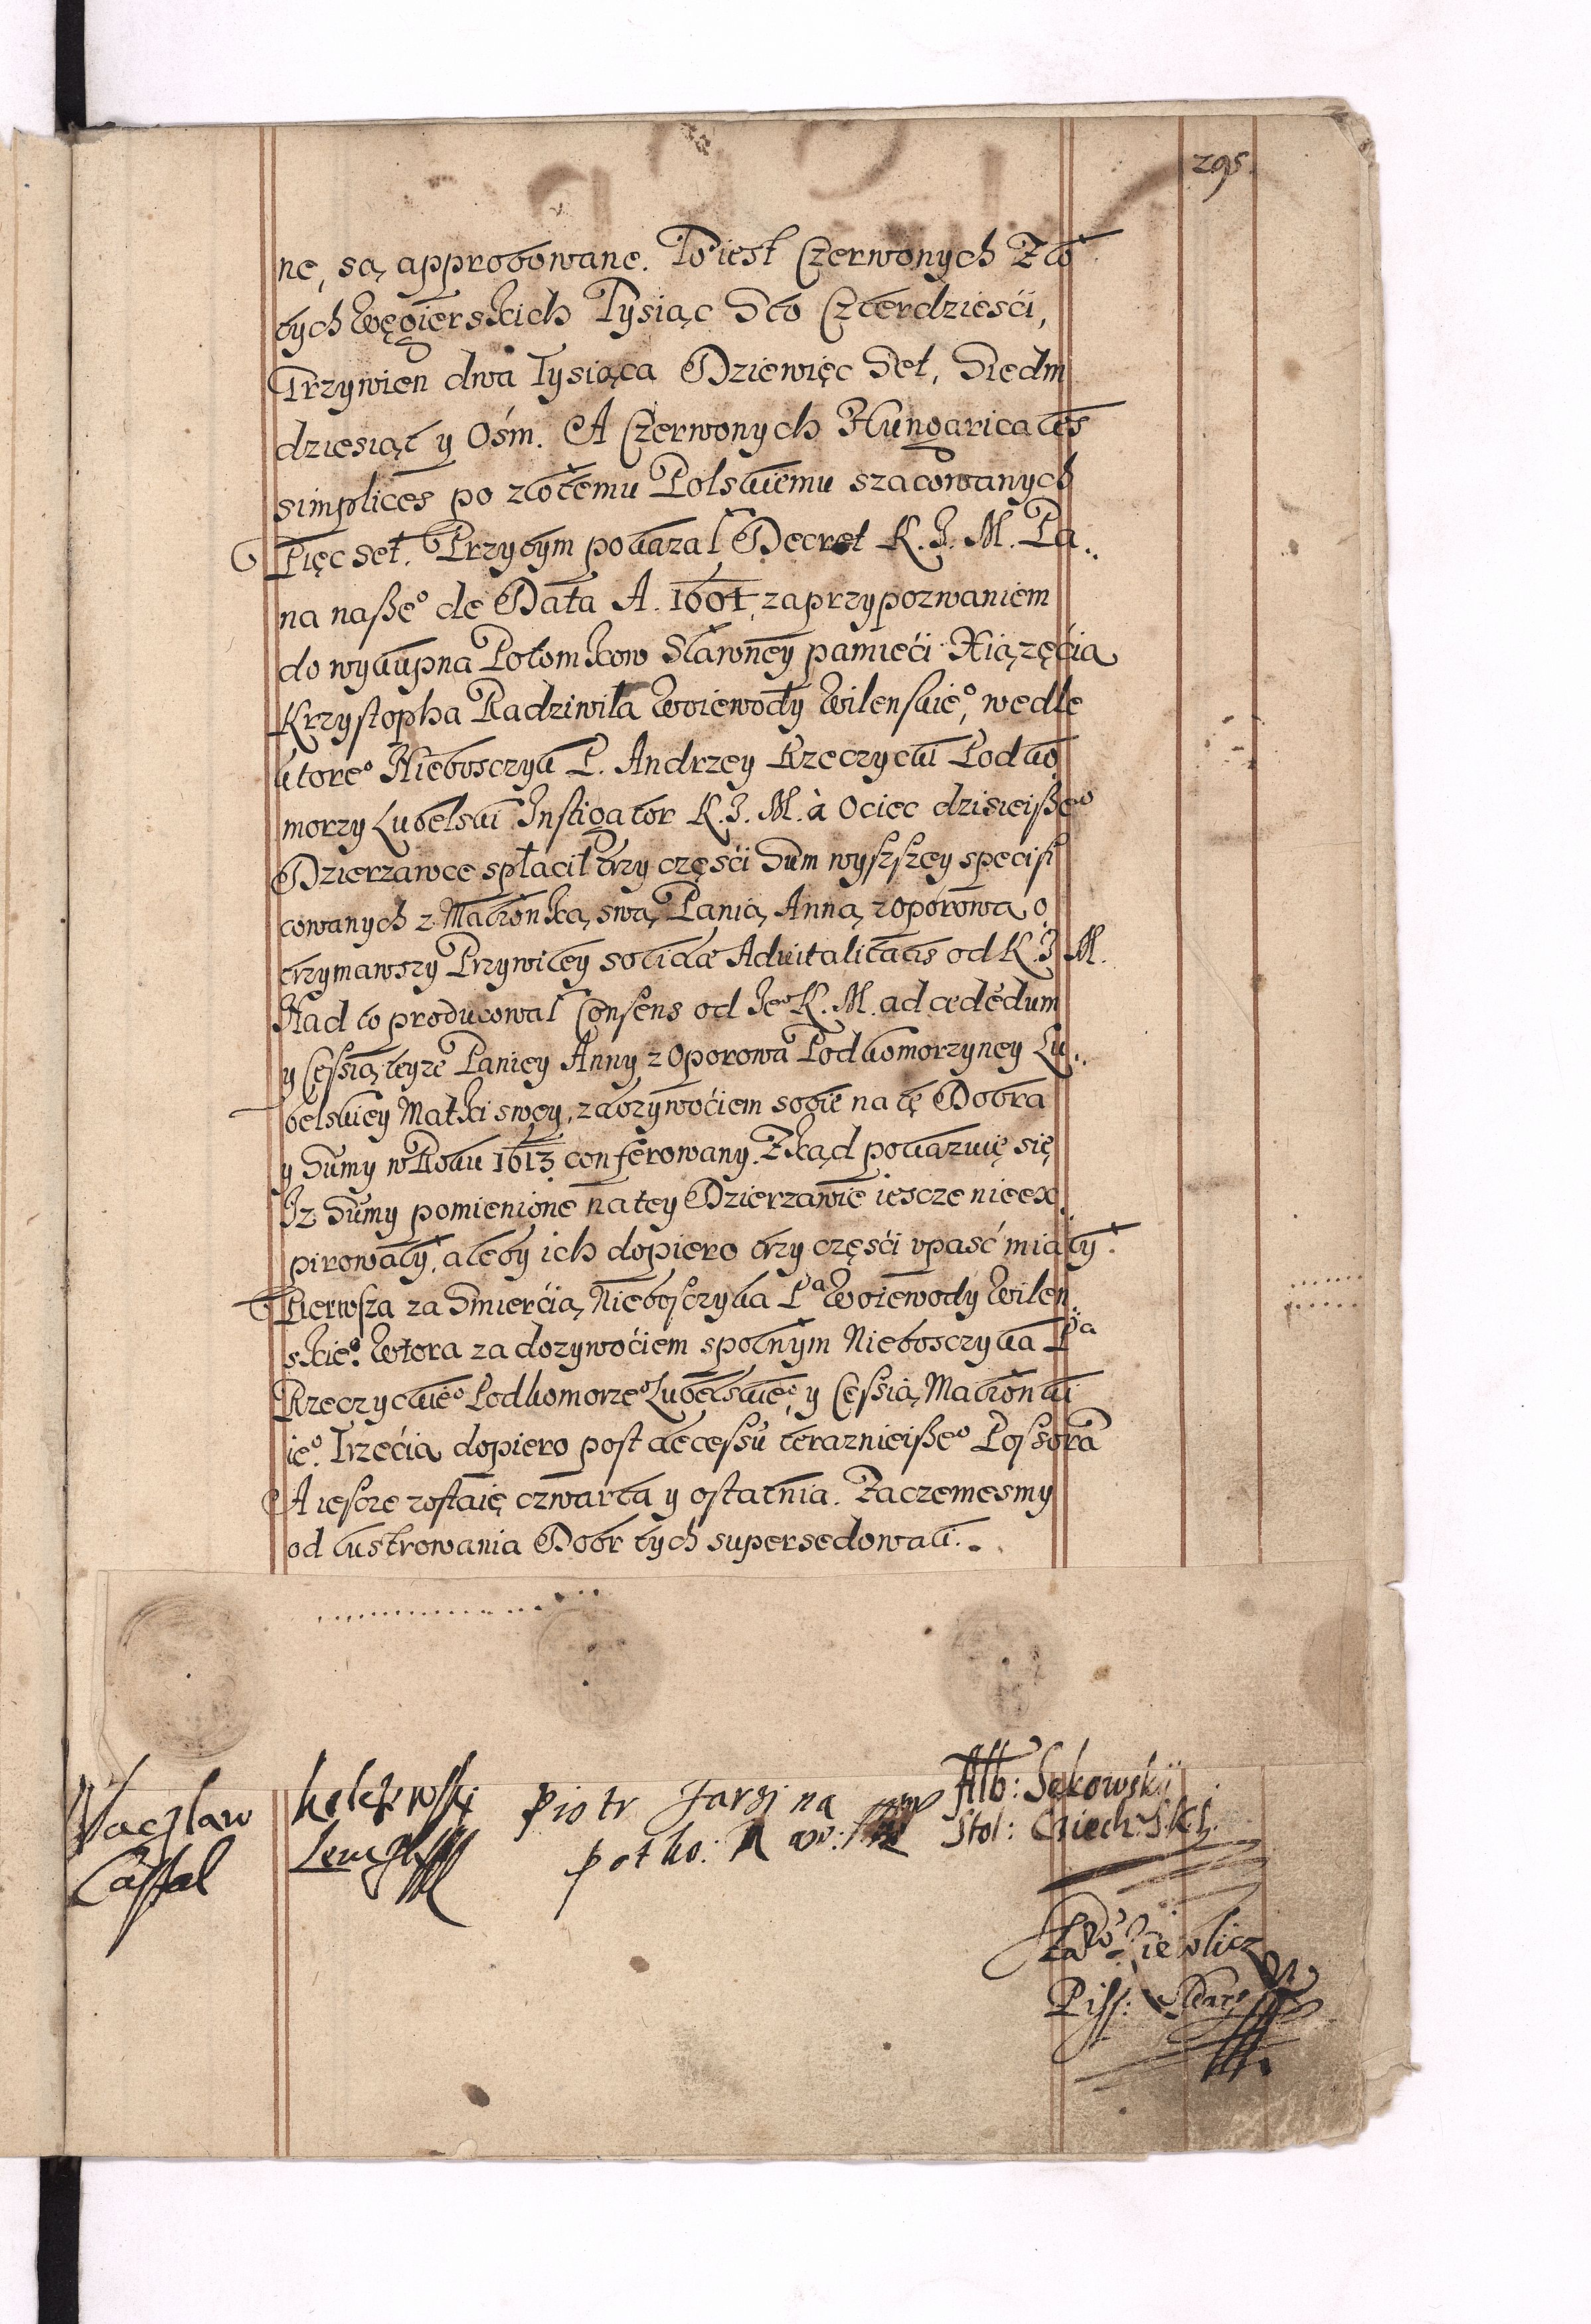 295.
ne, są approbowane. To iest Czerwonych Zło
tych Węgierskich Tysiąc Sto Czterdzieści,
Grzywien dwa Tysiąca Dziewięc Set, Siedm
dziesiąt y Ośm. A Czerwonych Hungaricates
simplices po złotemu Polskiemu szacowanych
Pięc set. Przytym pokazał Decret K. J. M. Pa..
na naszeº de Data A. 1604, zaprzypozwaniem
do wykupna Potomkow Sławney pamięći Xiązęćia
Krzysztopha Radziwiła Woiewody Wilenskieº, wedle
ktoreº Nieboszczyk P. Andrzey Rzeczycki Podko
morzy Lubelski Instigator K. J. M. à Ociec dzisieiszeº
Dzierzawce spłacił trzy częśći Sum wyszszey specifi
cowanych z Małzonką swą, Panią Anną z Oporowa, o
trzymawszy Przywiley solidæ Aduitalitatis od K. J M.
Nad to producował Consens od Jeº K. M. ad cedēdum
y Cessią teyze Paniey Anny z Oporowa Podkomorzyney Lu..
belskiey Matki swey, z dozywoćiem sobie na te Dobra
y Sumy w Roku 1613 conferowany. Zkąd pokazuię się
Iz Sumy pomienione na tey Dzierzawie iescze nieex
pirowały, aleby ich dopiero trzy częśći vpaść miały.
Pierwsza za Smierćią Nieboszczyka Pª Woiewody Wilen..
skieº. Wtora za dozywoćiem społnym Nieboszczyka Pª
Rzeczyckieº Podkomorzeº Lubelskieº, y Cessią Małzonki
ieº. Trzećia dopiero post decessū terazniejszeº Possora
A iescze zostaię czwarta y ostatnia. Zaczemesmy
od lustrowania Dobr tych supersedowali.
Waczlaw Piotr Jarzina Alb: Sękowskij
Castal potho: Raw: Stol: Ciech:
Piss: Skar: